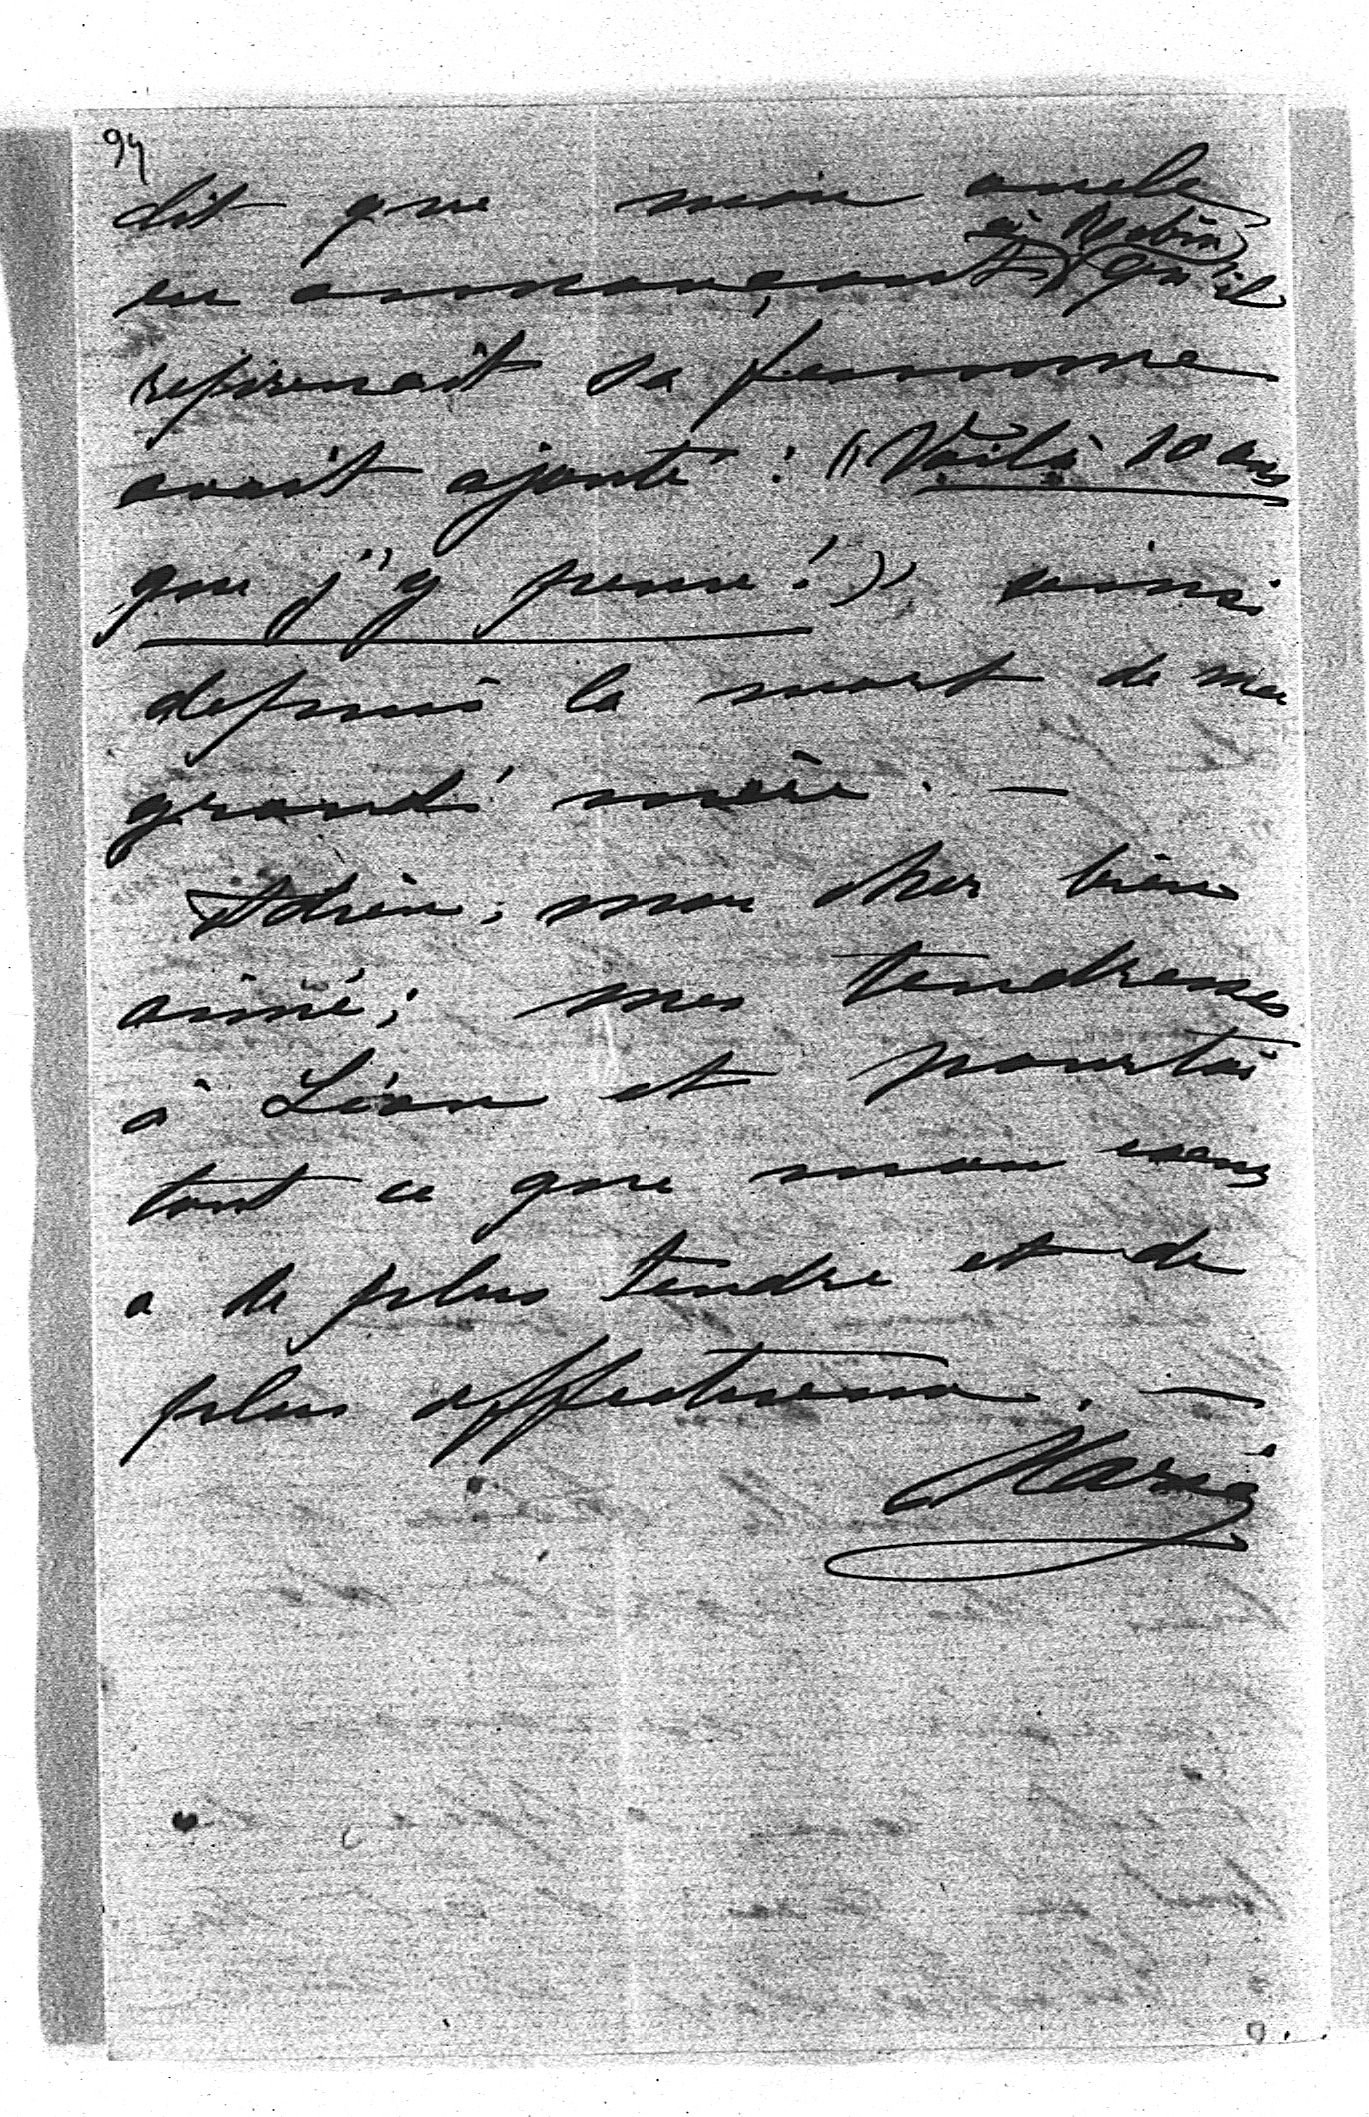 dit que mon oncle
à Robin
en annonçant qu'il
reprenait sa femme
avait ajouté : « Voilà 10 ans
que j'y pense ! » ainsi
depuis la mort de ma
grand' mère. —
Adrien, mon cher bien
aimé ; mes tendresses
à Léon et pour toi
tout ce que mon cœur
a de plus tendre et de
plus affectueux. —
Marie